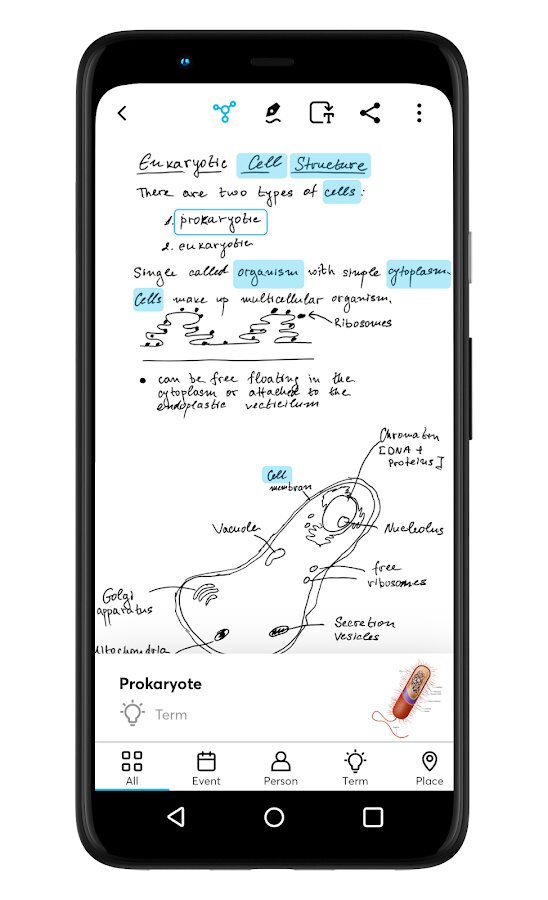 Eukaryotic Cell Structure
There are two types of cells:
1. prokaryotic
2. eukaryotic
Single called organism with simple cytoplasm.
Cells make up multicellular organism.
Ribosomes
• can be free floating in the
cytoplasm or attached to the
endoplastic
Chromatin
[DNA +
Proteins]
Cell
membran
Vacuole
Nucleolus
free
ribosomes
Golgi
apparatus
Secretion
vesicles
Mitochondria
Prokaryote
Term
All
Event
Person
Term
Place